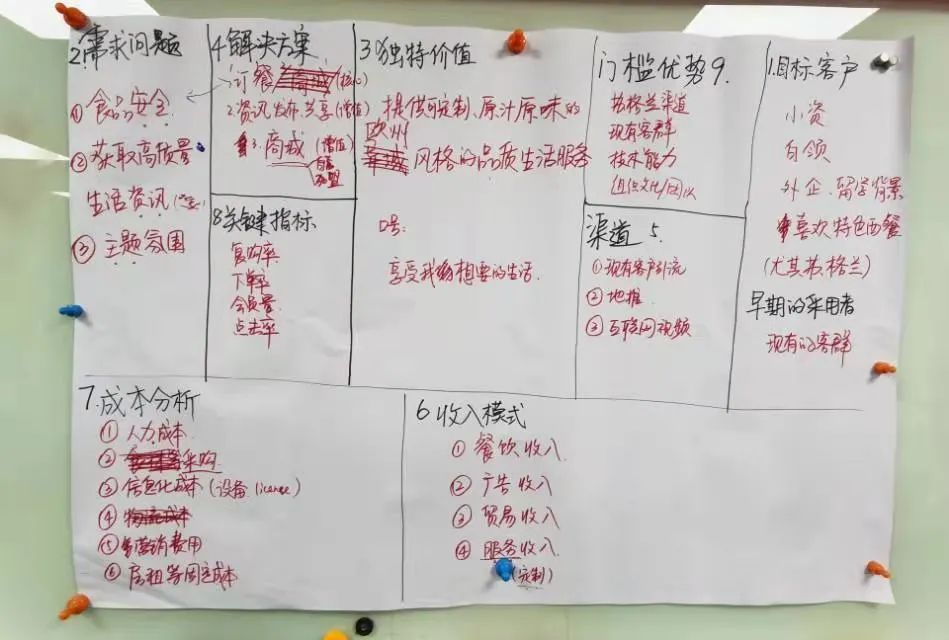 2.需求问题
① 食品安全
② 获取高质量
生活资讯
③ 主题氛围
4 解决方案
1.订餐 (核心)
2.资讯发布.共享(增值)
3.商城 (增值)
自营
加盟
3 独特价值
提供可定制、原汁原味的
欧州
风格的品质生活服务
口号:
享受我们想要的生活.
门槛优势 9.
苏格兰渠道
现有客群
技术能力
组织文化/团队
1.目标客户
小资
白领
外企.留学背景
喜欢特色西餐
(尤其苏格兰)
早期的采用者
现有的客群
8关键指标
复购率
下单率
会员量
点击率
渠道 5.
①现有客户引流
② 地推
③ 互联网视频
7.成本分析
① 人力成本
② 采购
③ 信息化成本(设备 license)
④ 物流成本
⑤营销费用
⑥ 房租等固定成本
6 收入模式
① 餐饮收入
② 广告收入
③ 贸易收入
④ 服务收入
(定制)